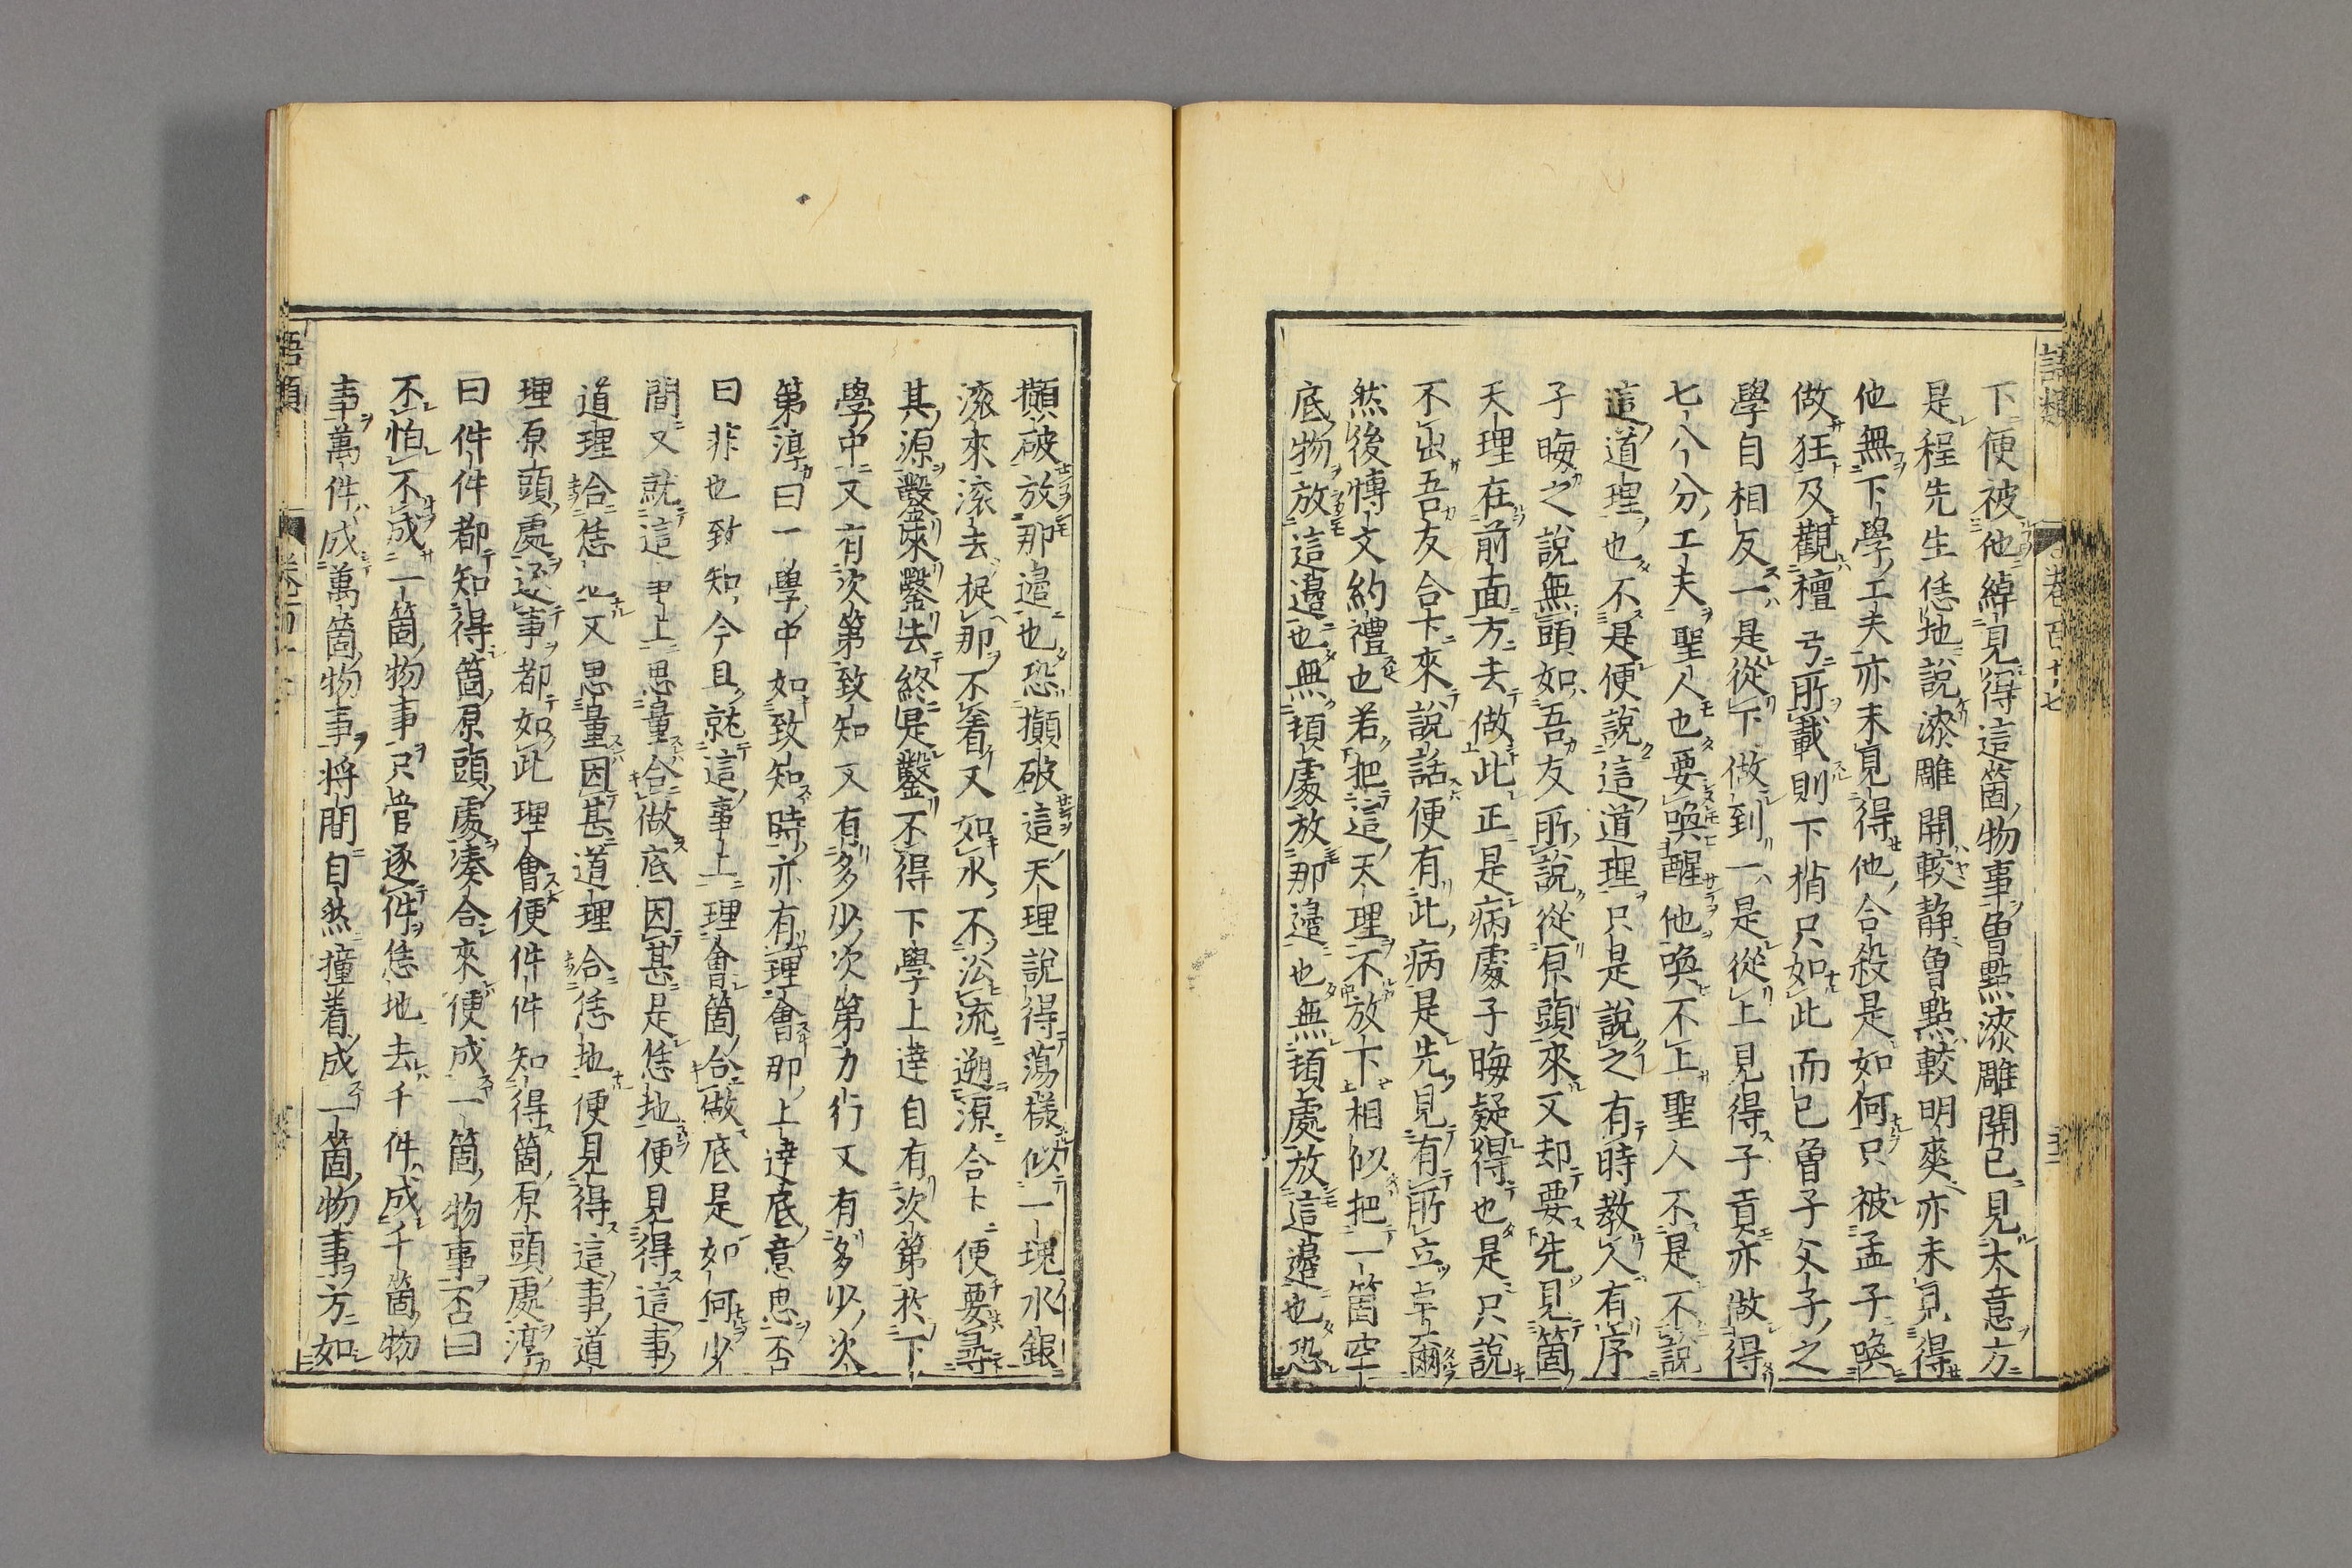 語類
卷百十七
下便被他綽見得這箇物事曽點漆雕開已見大意方
是程先生恁地說漆雕開較静曽點較明爽亦未見得
他無下學工夫亦未見得他合殺是如何只被孟子喚
做狂及觀檀弓所載則下梢只如此而已曽子父子之
學自相反一是從下做到一是從上見得子貢亦做得
七八分工夫聖人也要喚醒他喚不上聖人不是不說
這道理也不是便說這道理只是說之有時教人有序
子晦之說無頭如吾友所說從原頭來又却要先見箇
天理在前面方去做此正是病處子晦疑得也是只說
不出吾友合下來說話便有此病是先見有所立卓爾
然後博文約禮也若把這天理不放下相似把一箇空
底物放這邉也無頓處放那邉也無頓處放這邉也恐
攧破放那邉也恐攧破這天理說得蕩様似一塊水銀
滚來滚去捉那不着又如水不㳂流遡源合下便要尋
其源鑿來鑿去終是鑿不得下學上達自有次第於下
學中又有次第致知又有多少次第力行又有多少次
第淳曰下學中如致知時亦有理會那上達底意思否
曰非也致知今且就這事上理會箇合做底是如何少
間又就這事上思量合做底因甚是恁地便見得這事
道理合恁地又思量因甚道理合恁地便見得這事道
理原頭處逐事都如此理會便件件知得箇原頭處淳
曰件件都知得箇原頭處湊合來便成一箇物事否曰
不怕不成一箇物事只管逐件恁地去千件成千箇物
事萬件成萬箇物事將間自然撞着成一箇物事方如
語類